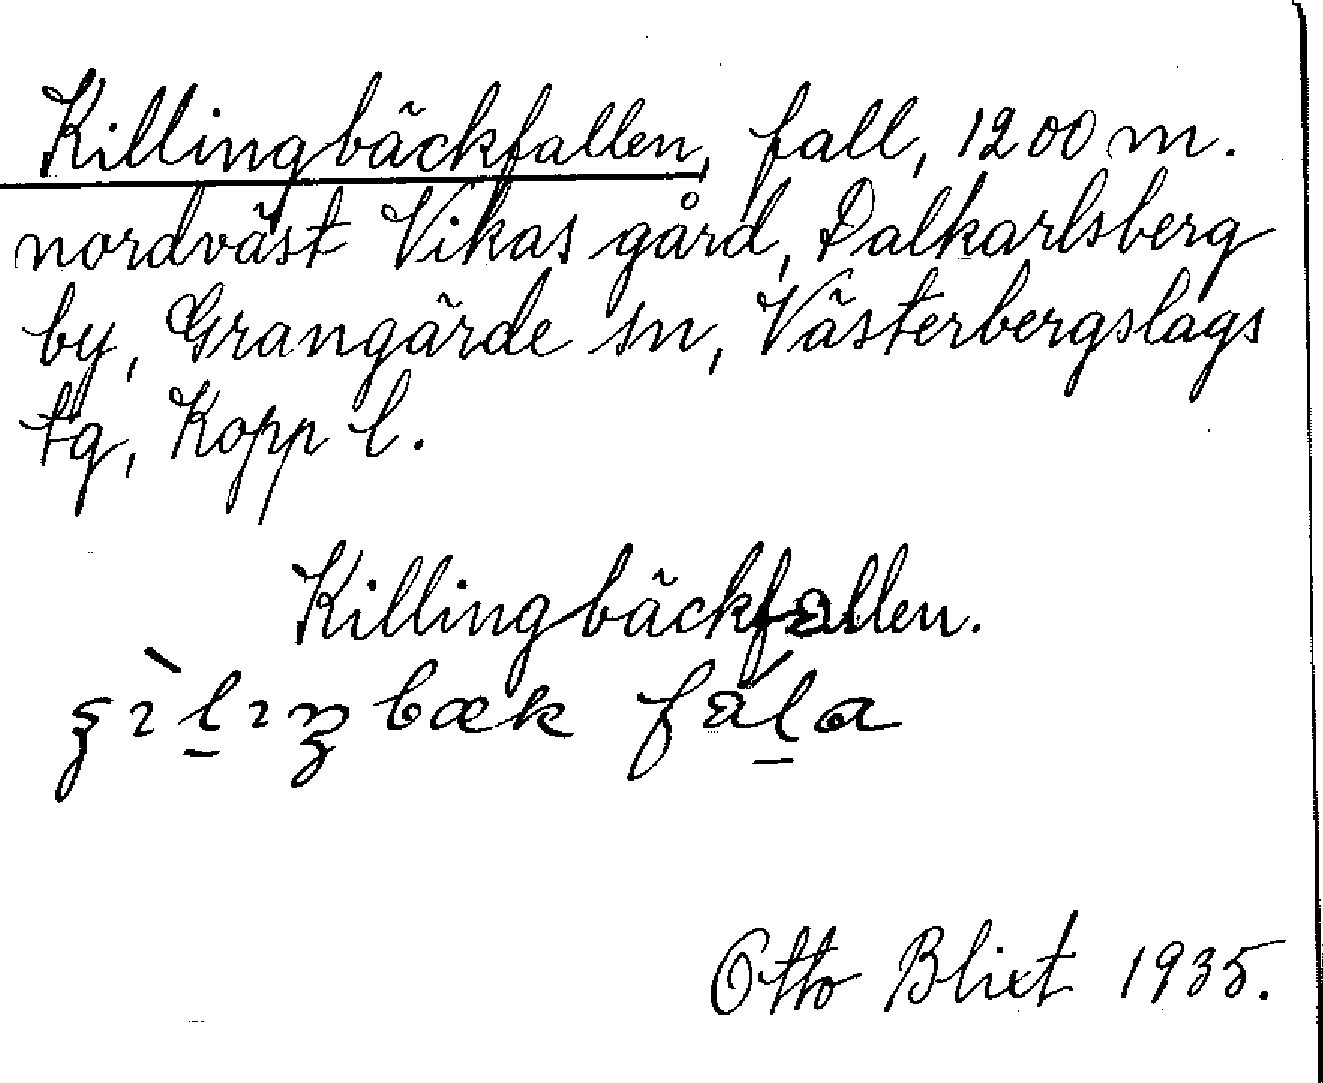 Killingbäckfallen, fall, 1200 m.
nordväst Vikas gård, Dalkarlsberg
by, Grangärde sn, Västerbergslags
tg, Kopp l.
Killingbäckfallen.
Otto Blixt 1935.